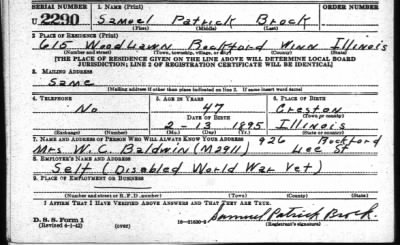 SERIAL NUMBER 1. NAME (Print)
U 2290 Samuel Patrick Brock
(First) (Middle) (Last)
2. PLACE OF RESIDENCE (Print)
615 Woodlawn Rockford Winn Illinois
(Number and street) (Town, township, village, or city) (County) (State)
[THE PLACE OF RESIDENCE GIVEN ON THE LINE ABOVE WILL DETERMINE LOCAL BOARD
JURISDICTION; LINE 2 OF REGISTRATION CERTIFICATE WILL BE IDENTICAL]
3. MAILING ADDRESS
Same
[Mailing address if other than place indicated on line 2. If same insert word same]
4. TELEPHONE 5. AGE IN YEARS 6. PLACE OF BIRTH
No 47 Creston
DATE OF BIRTH (Town or county)
2 - 13 1895 Illinois
(Exchange) (Number) (Mo.) (Day) (Yr.) (State or country)
7. NAME AND ADDRESS OF PERSON WHO WILL ALWAYS KNOW YOUR ADDRESS 926 Rockford
Mrs W. C. Baldwin (M2911) Lee St
8. EMPLOYER'S NAME AND ADDRESS
Self (Disabled World War Vet)
9. PLACE OF EMPLOYMENT OR BUSINESS
(Number and street or R. F. D. number) (Town) (County) (State)
I AFFIRM THAT I HAVE VERIFIED ABOVE ANSWERS AND THAT THEY ARE TRUE.
D. S. S. Form 1 Samuel Patrick Brock
(Revised 4-1-42) (over) (Registrant's signature)